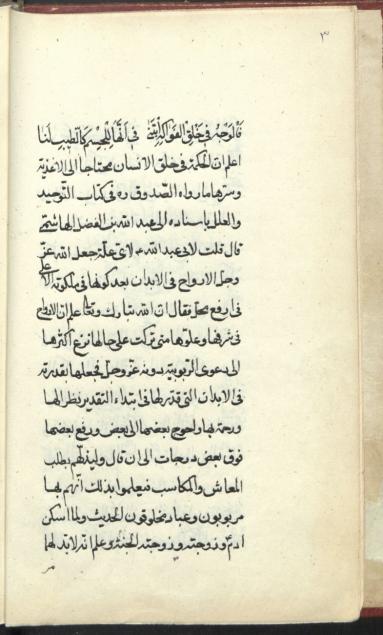 ٣
قال وجه في خلق الفواكه في أنها للجسم كالطبيب لنا
اعلم ان الحكمة في خلق الانسان محتاجا الى الاغذية
وسرها ما رواه الصدوق ره في كتاب التوحيد
والعلل باسناده الى عبد الله بن الفضل الهاشمي
قال قلت لابي عبد الله ع لاي علة جعل الله عز
وجل الارواح في الابدان بعد كونها في ملكوته الاعلى
في ارفع محل فقال ان الله تبارك وتعالى علم ان الارواح
في شرفها وعلوها متى تركت على حالها نزع اكثرها
الى دعوى الربوبية دونه عز وجل فجعلها بقدرته
في الابدان التي قدر لها في ابتداء التقدير نظرا لها
ورحمة بها واحوج بعضها الى بعض ورفع بعضها
فوق بعض درجات الى ان قال وليذلهم بطلب
المعاش والمكاسب فيعلموا بذلك انهم بها
مربوبون وعباد مخلوقون الحديث ولما اسكن
ادم و زوجته الجنة وعلم انه لابد لهما